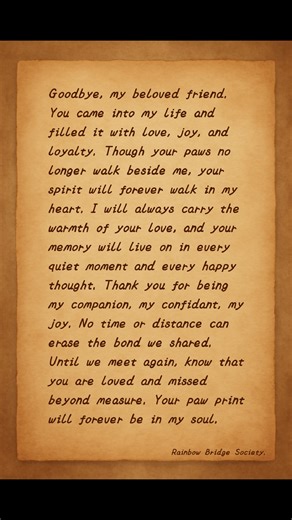 Goodbye, my beloved friend.
You came into my life and
filled it with love, joy, and
loyalty. Though your paws no
longer walk beside me, your
spirit will forever walk in my
heart. I will always carry the
warmth of your love, and your
memory will live on in every
quiet moment and every happy
thought. Thank you for being
my companion, my confidant, my
joy. No time or distance can
erase the bond we shared.
Until we meet again, know that
you are loved and missed
beyond measure. Your paw print
will forever be in my soul.
Rainbow Bridge Society.